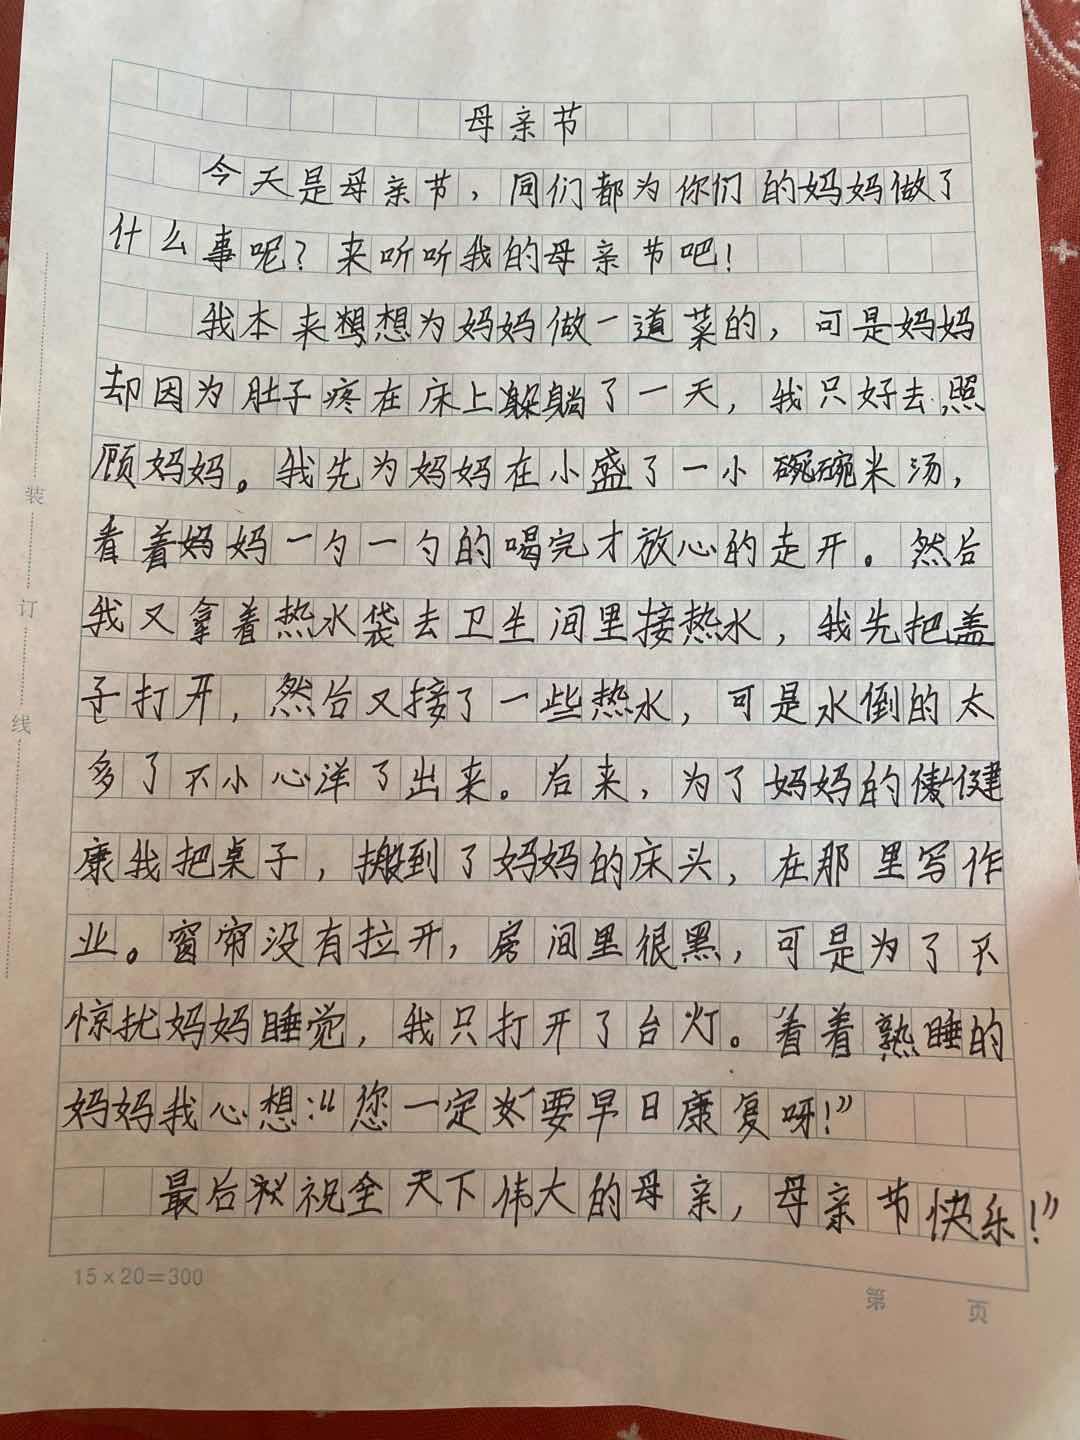 母亲节
今天是母亲节，同们都为你们的妈妈做了
什么事呢？来听听我的母亲节吧！
我本来想为妈妈做一道菜的，可是妈妈
却因为肚子疼在床上躺了一天，我只好去照
顾妈妈。我先为妈妈在小盛了一小碗米汤，
看着妈妈一勺一勺的喝完才放心的走开。然后
我又拿着热水袋去卫生间里接热水，我先把盖
子打开，然后又接了一些热水，可是水倒的太
多了不小心洋了出来。后来，为了妈妈的健
康我把桌子，搬到了妈妈的床头，在那里写作
业。窗帘没有拉开，房间里很黑，可是为了不
惊扰妈妈睡觉，我只打开了台灯。看着熟睡的
妈妈我心想：“您一定要早日康复呀！”
最后祝全天下伟大的母亲，母亲节快乐！”
15×20=300
第 页
装
订
线